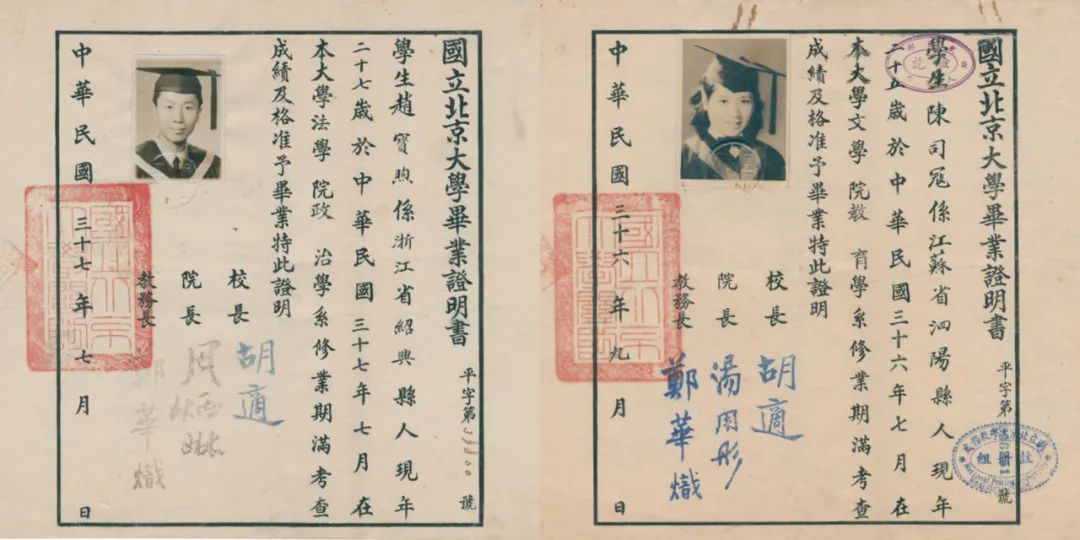 國立北京大學畢業證明書
平字第33800號
學生趙寶煦係浙江省紹興縣人現年
二十七歲於中華民國三十七年七月在
本大學法學院政治學系修業期滿考查
成績及格准予畢業特此證明
校長 胡適
院長 周炳琳
教務長 鄭華熾
中華民國三十七年七月 日
國立北京大學畢業證明書
平字第 號
學生陳司寇係江蘇省泗陽縣人現年
二十五歲於中華民國三十六年七月在
本大學文學院教育學系修業期滿考查
成績及格准予畢業特此證明
校長 胡適
院長 湯用彤
教務長 鄭華熾
中華民國三十六年九月 日
註冊組